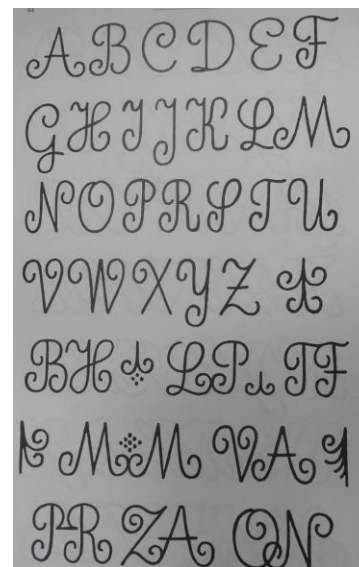 A B C D E F
G H I J K L M
N O P R S T U
V W X Y Z
BH LP TF
M M VA
PR ZA ON